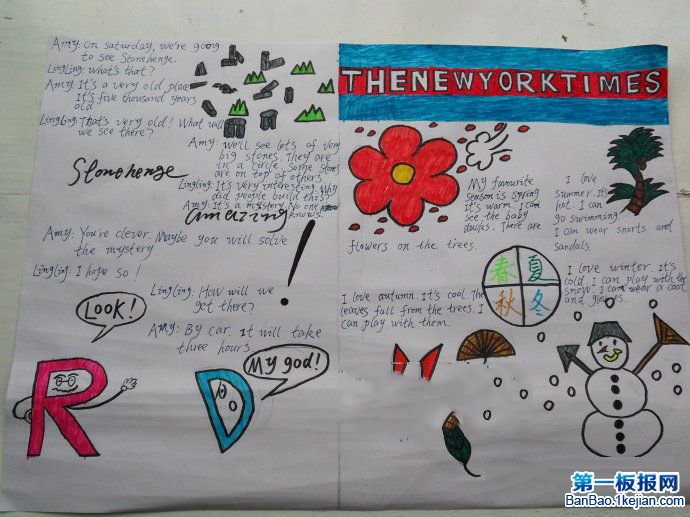 Amy: On saturday, we're going
to see Stonehenge.
Lingling: what's that?
Amy: It's a very old place
It's five thousand years
old.
Lingling: That's very old! What will
we see there?
Amy: we'll see lots of very
big stones. They are
in a circle. Some stones
are on top of others.
Stonehenge
Lingling: It's very interesting. Why
did people build this?
Amy: It's a mystery. No one
knows.
amazing
!
Amy: You're clever. Maybe you will solve
the mystery.
Lingling: I hope so!
Lingling: How will we
get there?
Amy: By car. It will take
three hours.
LOOK!
My god!
R
D
THENEWYORKTIMES
My favourite
season is spring
It's warm. I can
see the baby
ducks. There are
flowers on the trees.
I love
summer. It's
hot. I can
go swimming.
I can wear snorts and
sandals.
春 夏
秋 冬
I love autumn. It's cool. The
leaves fall from the trees. I
can play with them.
I love winter. It's
cold. I can play with the
snow. I can wear a coat
and gloves.
第一板报网
BanBao.1kejian.com